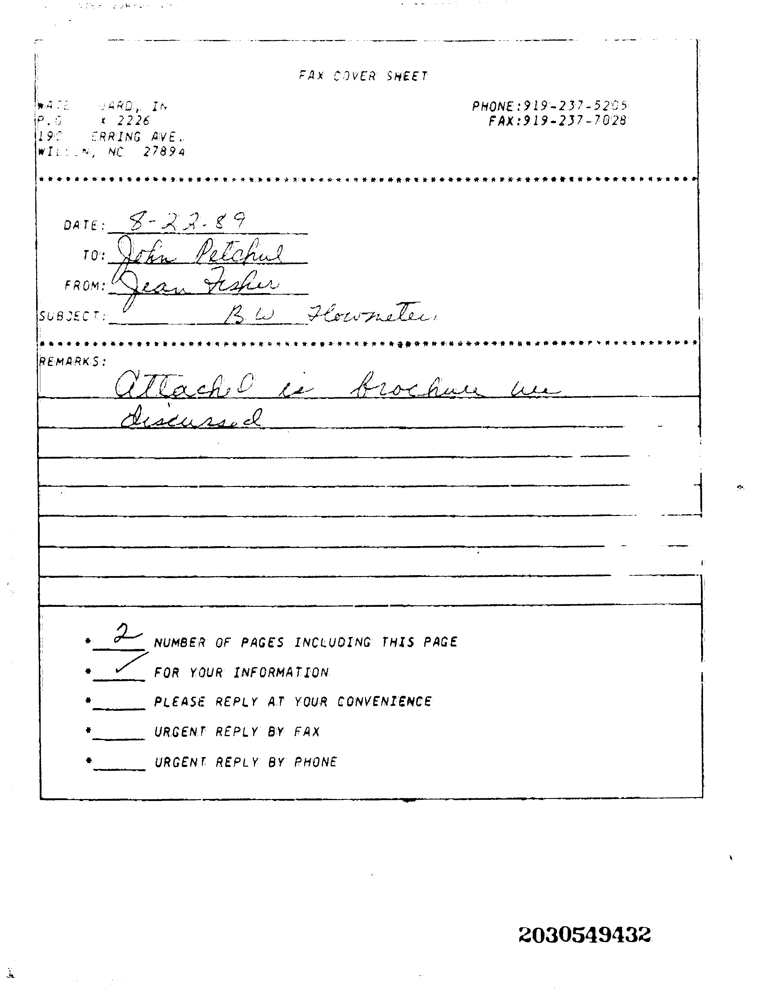 FAX COVER SHEET
PHONE:919-237-5205
P.O 2226 FAX:919-237-7028
ERRING AVE.
NC 27894
DATE: 8-22-89
TO: John Petchul
FROM: Jean Fisher
SUBJECT: BW Flowmeter
REMARKS:
Attached is brochure we
discussed
* 2 NUMBER OF PAGES INCLUDING THIS PAGE
* ✓ FOR YOUR INFORMATION
* PLEASE REPLY AT YOUR CONVENIENCE
* URGENT REPLY BY FAX
* URGENT REPLY BY PHONE
2030549432